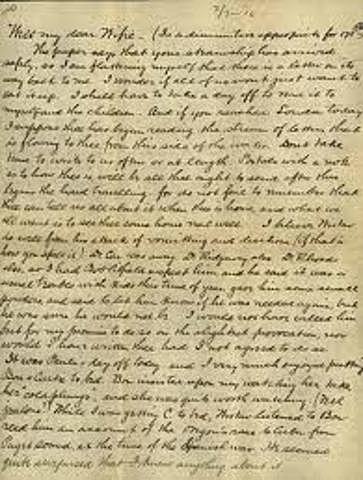 Well my dear Wifie - (Is a diminutive appropriate for
The paper says that your steamship has arrived
safely, so I am flattering myself that there is a letter on its
way back to me. I wonder if all of us won't just want to
eat it up. I shall have to take a day off to read it to
myself and the children. And if you reached London today
I suppose thee has begun reading the stream of letters that
is flowing to thee from this side of the water. Don't take
time to write to us often or at length. Postals with a note
as to how thee is will be all that ought to send after thee
begins the hard travelling for do not fail to remember that
thee can tell us all about it when thee is home, and what we
all want is to see thee come home real well. I believe
is well from his attack of vomiting and diarrhoea (if that is
how you spell it). Dr. was away Dr. Ridgway also Dr. Rhoads
also, so I had inspect him, and he said it was a
usual trouble with kids this time of year, gave him some small
powders and said to let him know if he was needed again, but
he was sure he would not be. I would not have called him
but for my promise to do so on the slightest provocation, nor
would I have written thee had I not agreed to do so.
It was day off today and I very much enjoyed putting
to bed. insisted upon my watching her take
her "cold plunge", and she was quite worth watching. (Well
While I was getting C to bed, listened to
read him an account of the Oregon's race to Cuba from
Puget Sound, at the time of the Spanish war. He seemed
quite surprised that I knew anything about it